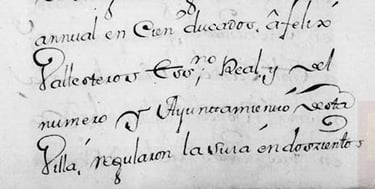 annual en Cien ducados. â felix
Vallesteros Ess.no Real, y del
numero y Ayuntamiento desta
Villa, regularon la suia en doszientos